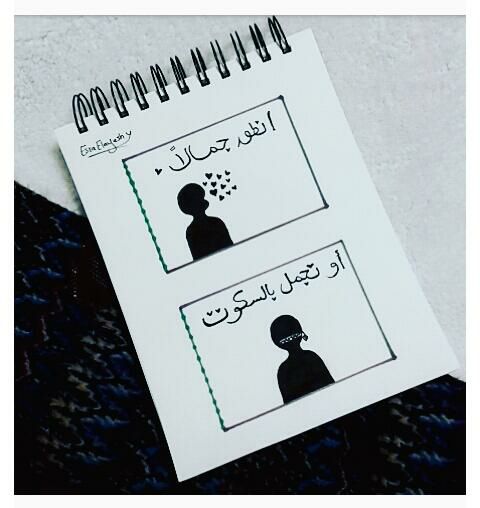 Esra Elayashy
انطق جمالاً
أو تجمل بالسكوت